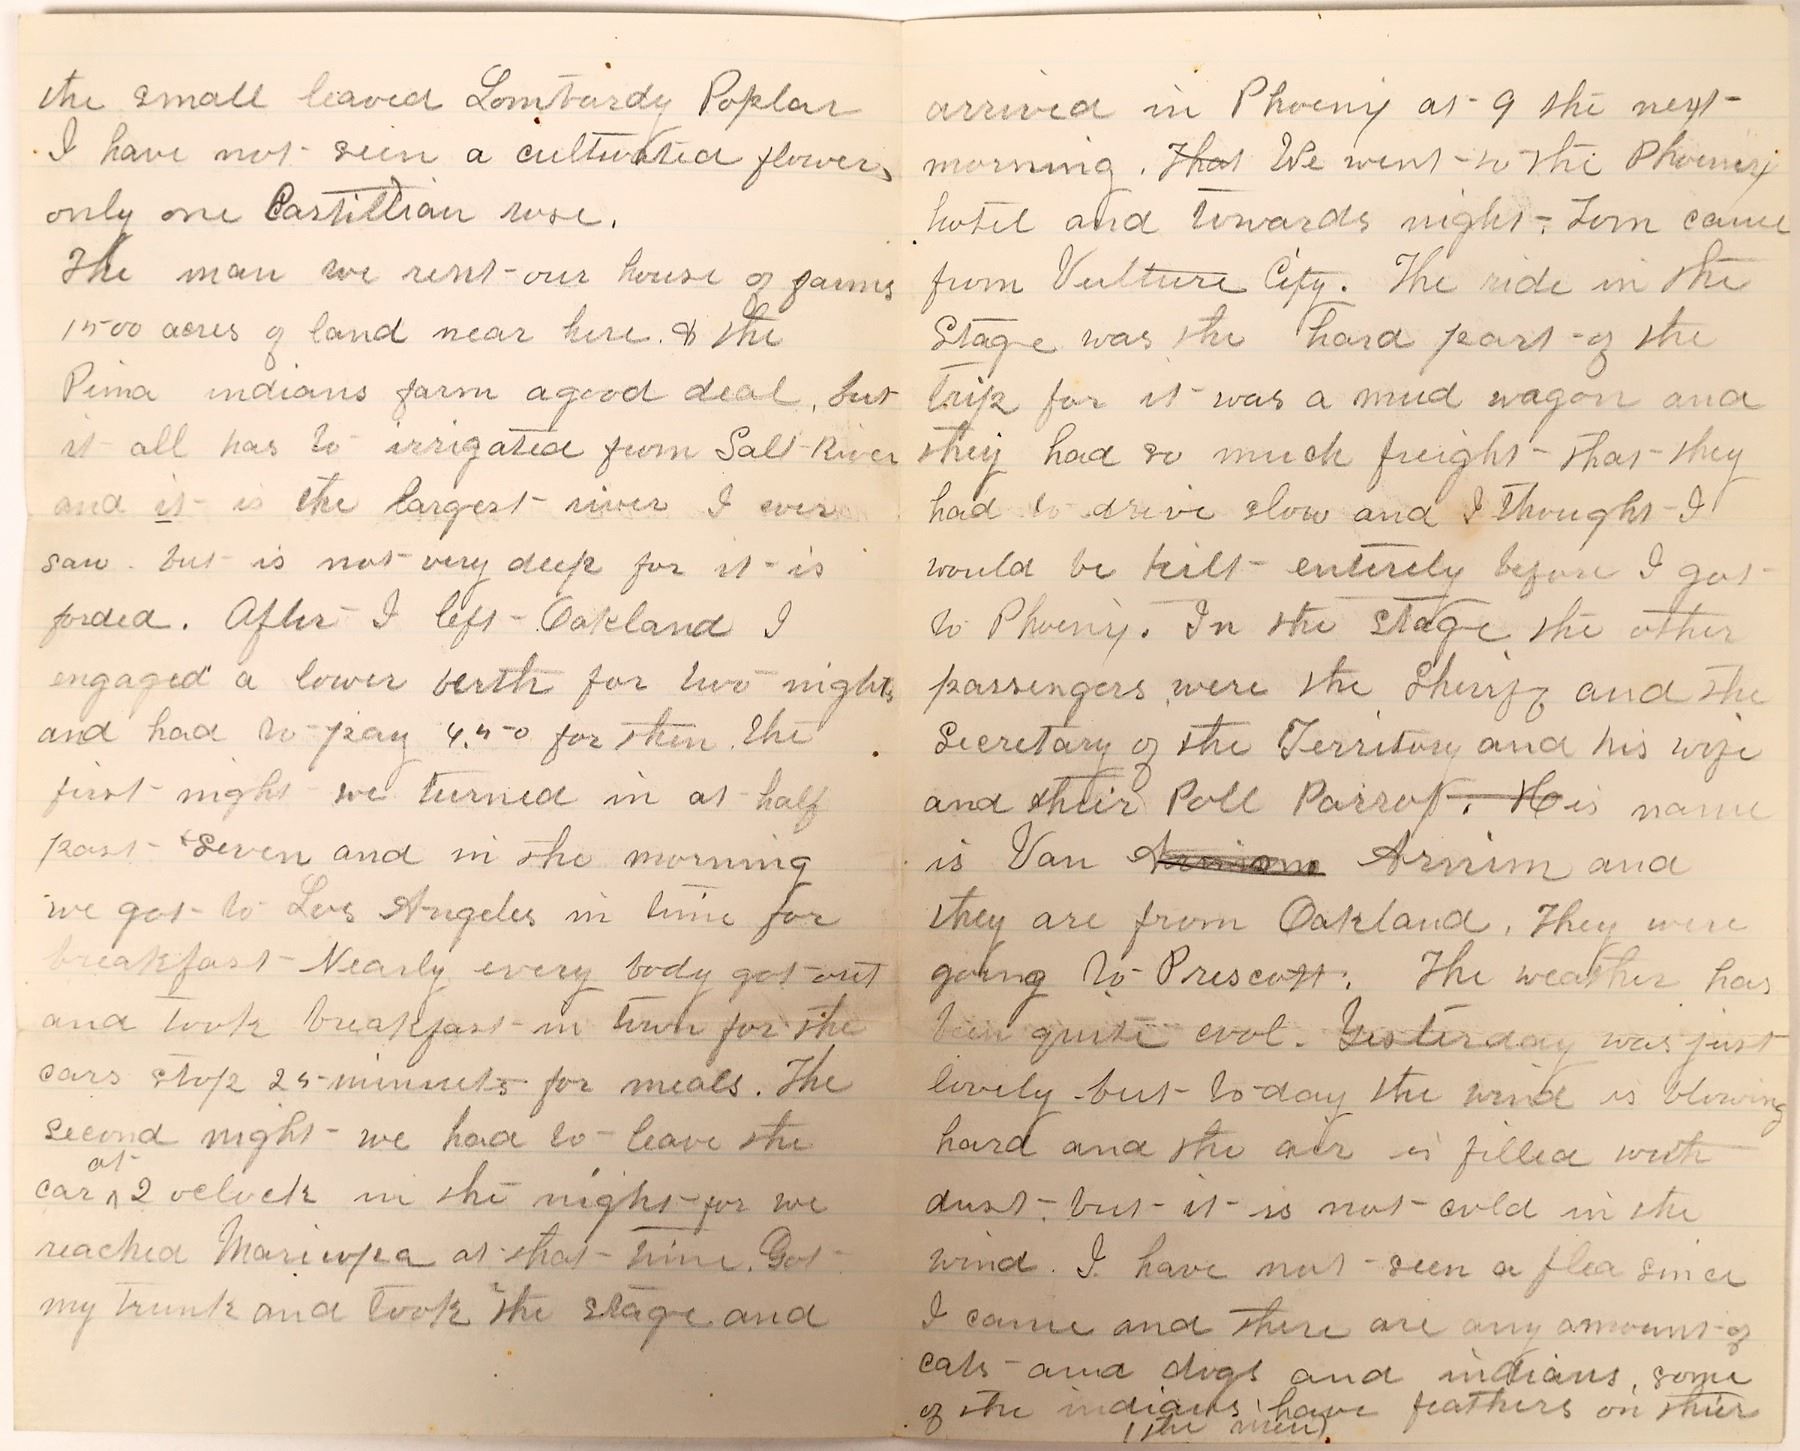 the small leaved Lombardy Poplar
I have not seen a cultivated flower,
only one Castillian rose.
The man we rent our house of farms
1500 acres of land near here. & the
Pima indians farm a good deal, but
it all has to irrigated from Salt River
and it is the largest river I ever
saw. but is not very deep for it is
forded. After I left Oakland I
engaged a lower berth for two nights
and had to pay 4.50 for them. The
first night we turned in at half
past Seven and in the morning
we got to Los Angeles in time for
breakfast Nearly every body got out
and took breakfast in town for the
cars stop 25 minnets for meals. The
second night we had to leave the
car at 2 oclock in the night for we
reached Maricopa at that time. Got
my trunk and took the stage and
arrived in Phoenix at 9 the next
morning. That We went to the Phoenix
hotel and towards night. Tom came
from Vulture City. The ride in the
Stage was the hard part of the
trip for it was a mud wagon and
they had so much freight that they
had to drive slow and I thought I
would be kilt entirely before I got
to Phoenix. In the stage the other
passengers were the Sheriff and the
Secretary of the Territory and his wife
and their Poll Parrot. His name
is Van Arnim and
they are from Oakland. They were
going to Prescott. The weather has
been quite cool. Yesterday was just
lovely but to day the wind is blowing
hard and the air is filled with
dust. but it is not cold in the
wind. I have not seen a flea since
I came and there are any amount of
cats and dogs and indians, some
of the indians have feathers on their
(the men)